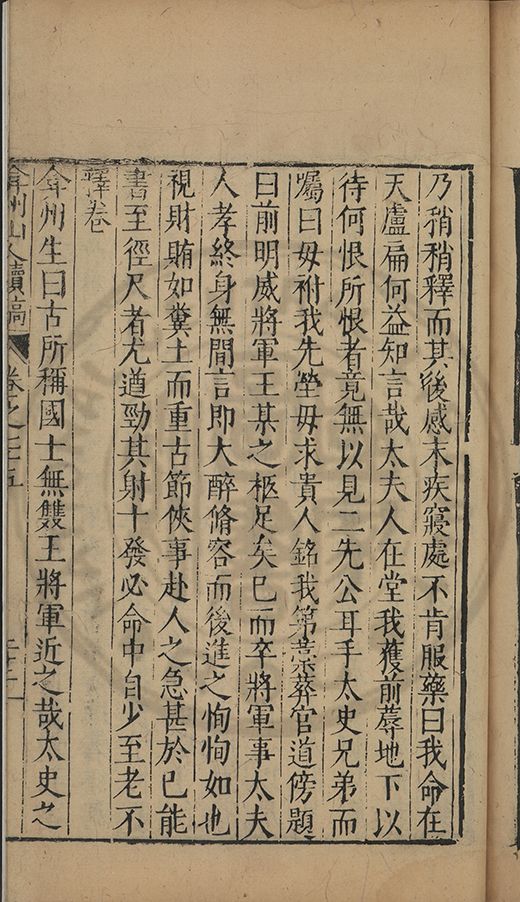 乃稍稍釋而其後感末疾寢處不肯服藥曰我命在
天盧扁何益知言哉太夫人在堂我獲前蓐地下以
待何恨所恨者竟無以見二先公耳手太史兄弟而
屬曰毋祔我先塋毋求貴人銘我第藁葬官道傍題
曰前明威將軍王某之柩足矣已而卒將軍事太夫
人孝終身無間言即大醉脩容而後進之恂恂如也
視財賄如糞土而重古節俠事赴人之急甚於已能
書至徑尺者尤遒勁其射十發必命中自少至老不
釋卷
弇州生曰古所稱國士無雙王將軍近之哉太史之
弇州山人續稿 卷之七十五